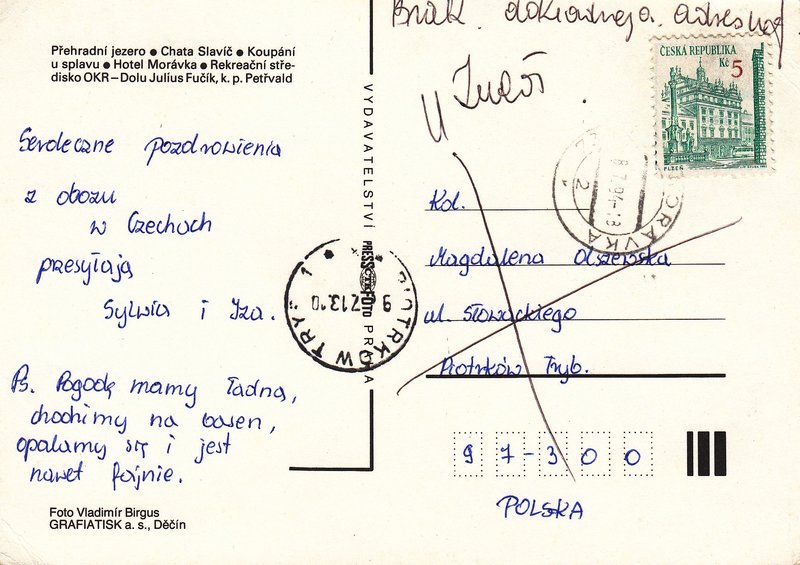 Přehradní jezero ● Chata Slavíč ● Koupání
u splavu ● Hotel Morávka ● Rekreační stře-
disko OKR – Dolu Julíus Fučík, k. p. Petřvald
Serdeczne pozdrowienia
z obozu
w Czechach
przesyłają
Sylwia i Iza.
Ps. Pogodę mamy ładną,
chodzimy na basen,
opalamy się i jest
nawet fajnie.
Foto Vladimír Birgus
GRAFIATISK a. s., Děčín
VYDAVATELSTVÍ PRESSFOTO PRAHA
PIOTRKÓW TRYB 1
9 7.13.10
Brak dokładnego adresu
ČESKÁ REPUBLIKA
Kč 5
PLZEŇ
MORÁVKA
2
Kol.
Magdalena Olszewska
ul. Słowackiego
Piotrków Tryb.
97-300
POLSKA